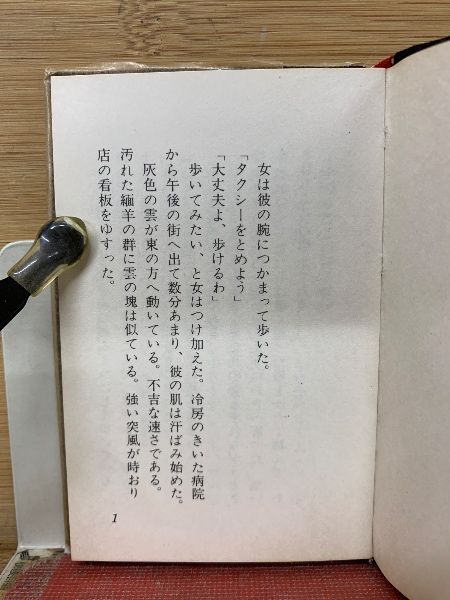 女は彼の腕につかまって歩いた。
「タクシーをとめよう」
「大丈夫よ、歩けるわ」
歩いてみたい、と女はつけ加えた。冷房のきいた病院
から午後の街へ出て数分あまり、彼の肌は汗ばみ始めた。
灰色の雲が東の方へ動いている。不吉な速さである。
汚れた緬羊の群に雲の塊は似ている。強い突風が時おり
店の看板をゆすった。
1